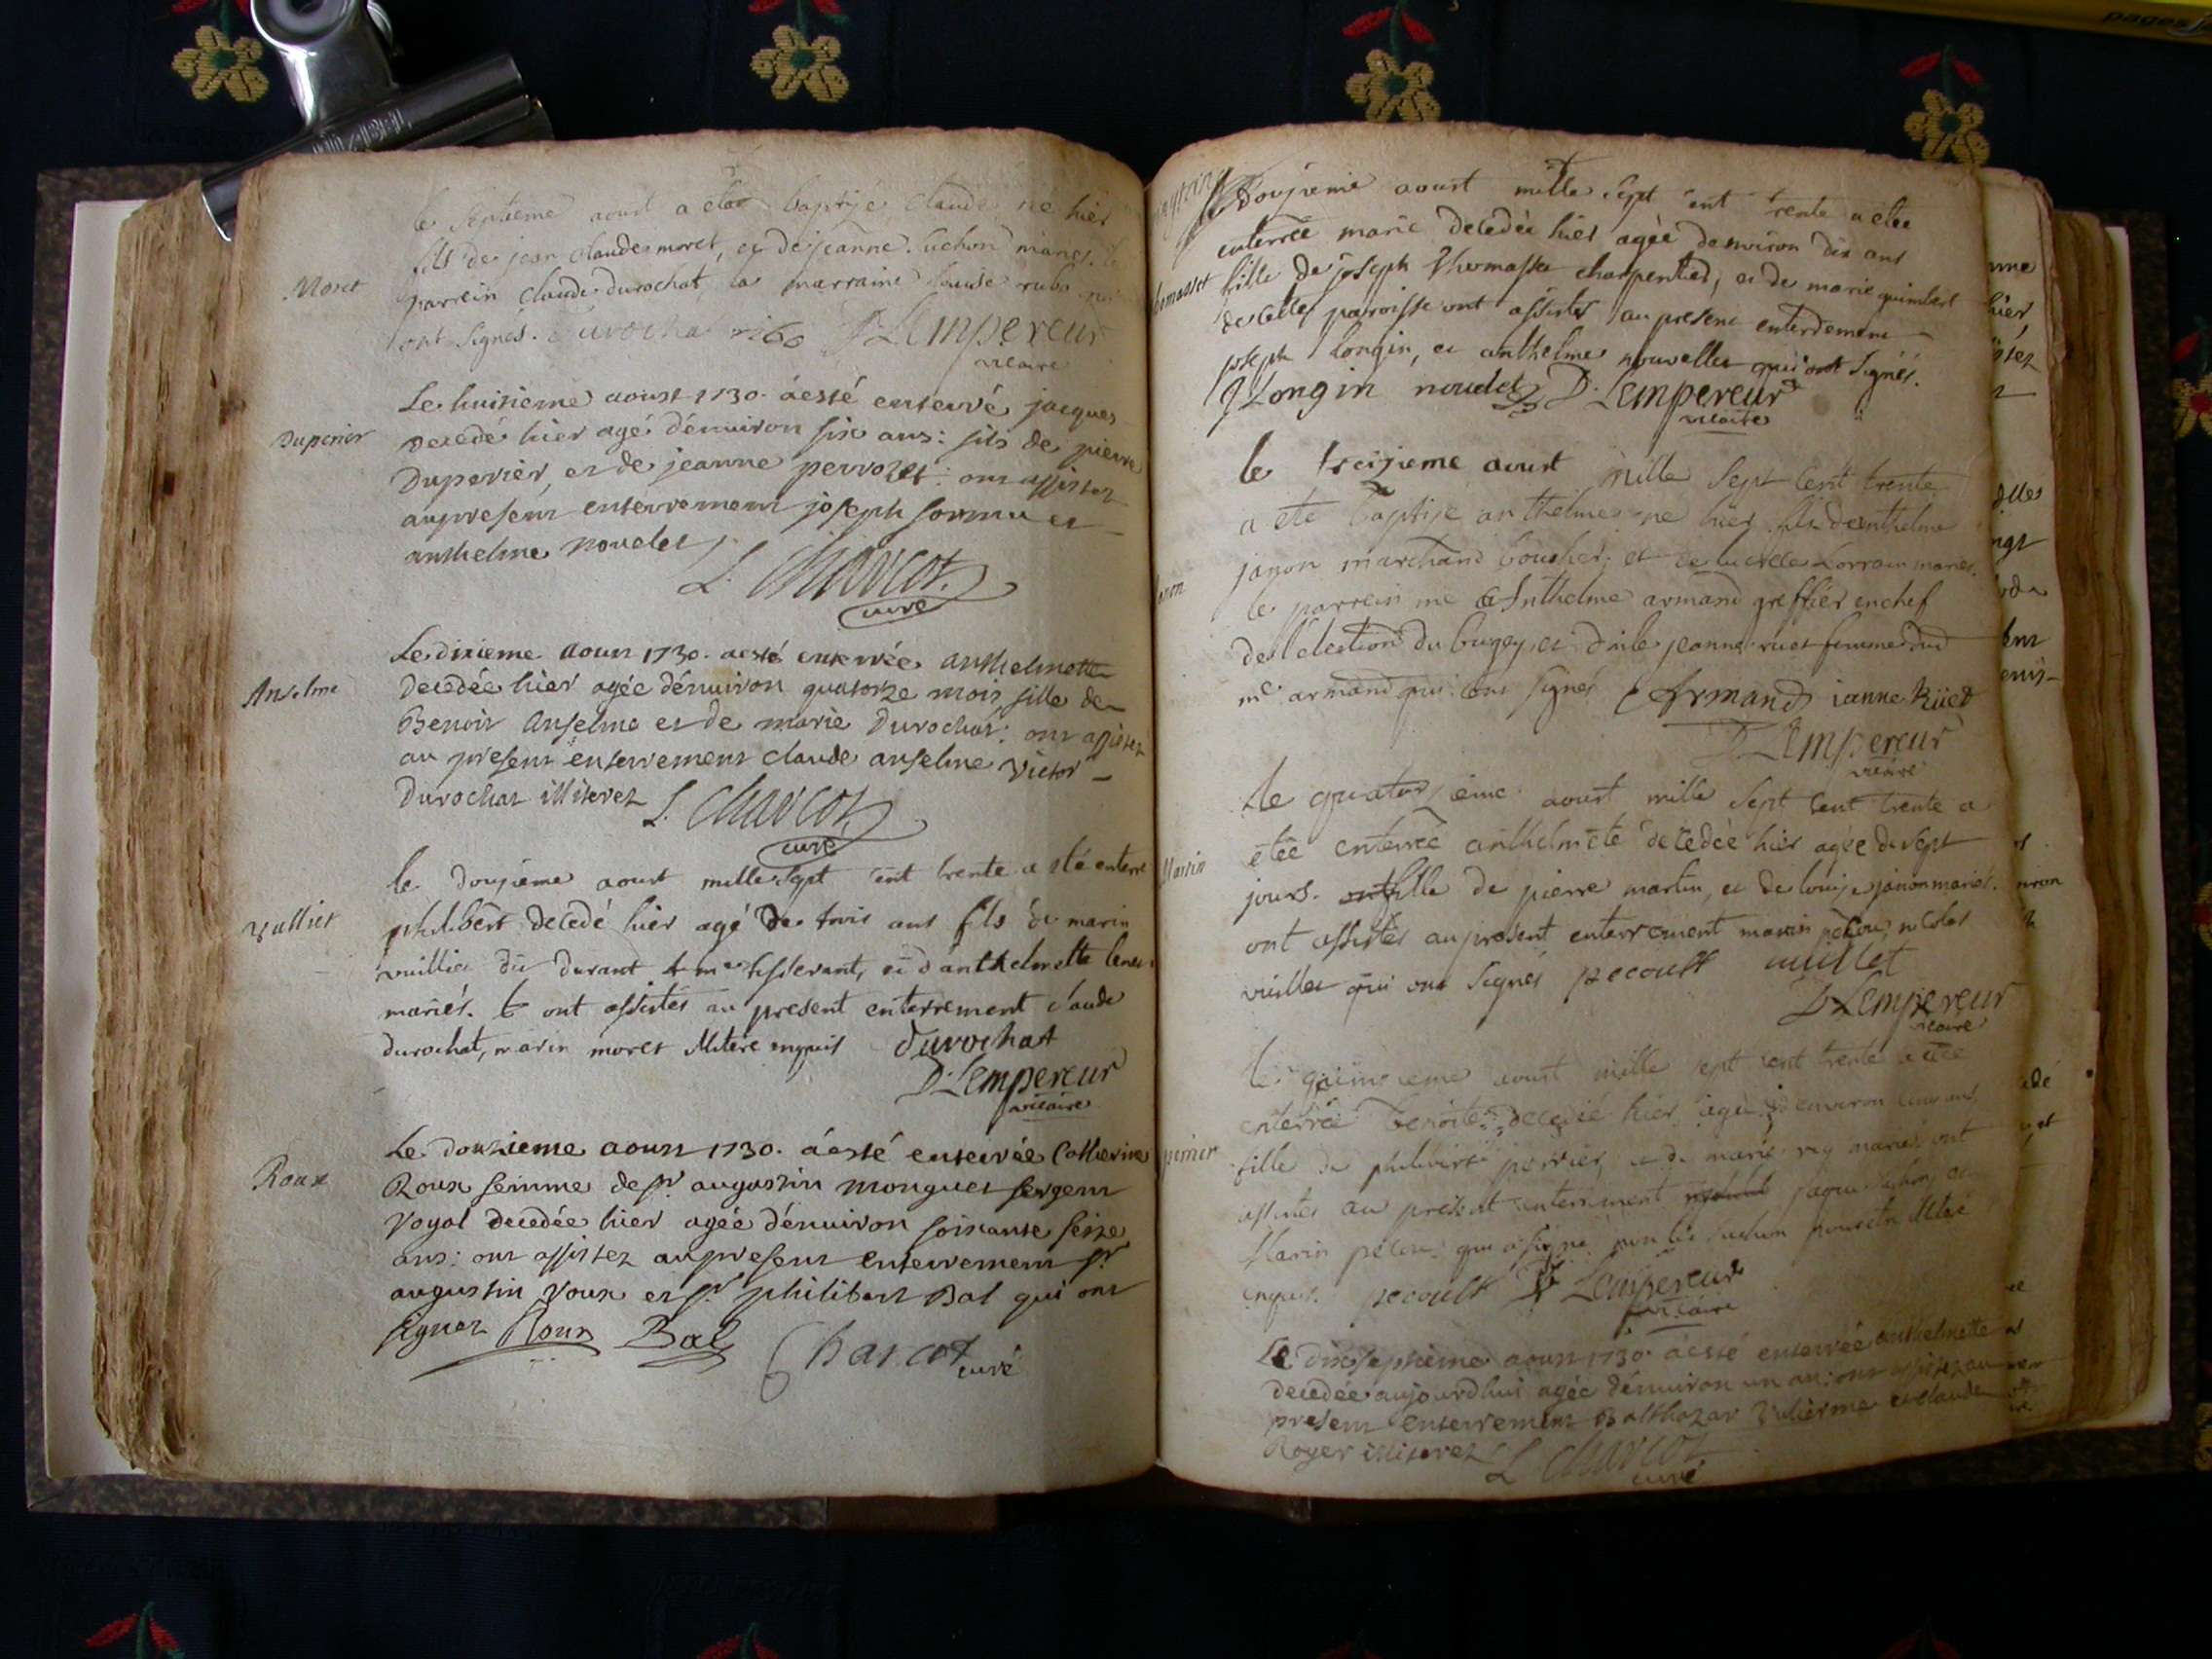 le septieme aoust a eté baptisé claude né hier
fils de jean claude moret, et de jeanne luchon mariés. le
Moret
parrein claude durochat, la marraine louise
ont signés. Durocha D. Lempereur
vicaire
Le huitieme aoust 1730. a esté enterré jacques
Duperier
decedé hier agé d'environ six ans: fils de pierre
Duperier, et de jeanne perrozet: ont assistez
au present enterrement joseph sornin et
anthelme nouelet
L. Charcot
curé
Le dixieme aoust 1730. a esté enterrée anthelmette
Anselme
decedée hier agée d'environ quatorze mois, fille de
Benoit Anselme et de marie Durochat: ont assistez
au present enterrement claude anselme victor
Durochat illiterez L. Charcot
curé
le douzieme aoust mille sept cent trente a eté enterré
Vullier
philibert decedé hier agé de trois ans fils de marin
vuillier dit durant me tisserant, et d'anthelmette
mariés. ont assistés au present enterrement claude
durochat, marin moret illitere enquis durochat
D. Lempereur
vicaire
Le douzieme aoust 1730. a esté enterrée Catherine
Roux
Roux femme de sr augustin monguet sergent
royal decedée hier agée d'environ soixante seize
ans: ont assistez au present enterrement sr
augustin roux et sr philibert Bal qui ont
signez Roux Bal Charcot
curé
le Douzieme aoust mille sept cent trente a etée
enterrée marie decedée hier agée d'environ dix ans
fille de joseph Thomasset charpentier, et de marie quimbert
de cette paroisse ont assistés au present enterrement
joseph longin, et anthelme nouvellet qui ont signés.
J Longin nouelet D. Lempereur
vicaire
le treizieme aoust mille sept cent trente
a eté baptisé anthelme né hier fils d'anthelme
janon marchand boucher, et de lucrece Lorrain mariés.
le parrein me Anthelme armand greffier en chef
de l'election du bugey, et dmle jeanne ruet femme dud
me armand qui ont signés Armand ianne Rüet
D. Lempereur
vicaire
le quatorzieme aoust mille sept cent trente a
etée enterrée anthelmete decedée hier agée de sept
Martin
jours. fille de pierre martin, et de louise janon mariés.
ont assistés au present enterrement marin pecou, nicolas
vuillet qui ont signés pecoult vuillet
D. Lempereur
vicaire
le quinzieme aoust mille sept cent trente a etée
enterrée benoite decedée hier agée d'environ ans
perrier
fille de philibert perrier, et de marie rey mariés ont
assistés au present enterrement jaque luchon, et
Marin pecou qui a signé non led luchon pour etre illiteré
enquis. pecoult D. Lempereur
vicaire
Le dixseptieme aoust 1730. a esté enterrée anthelmette
decedée aujourdhui agée d'environ un an: ont assistez au
present enterrement Balthazar Vulierme et claude
Royer illiterez L Charcot
curé